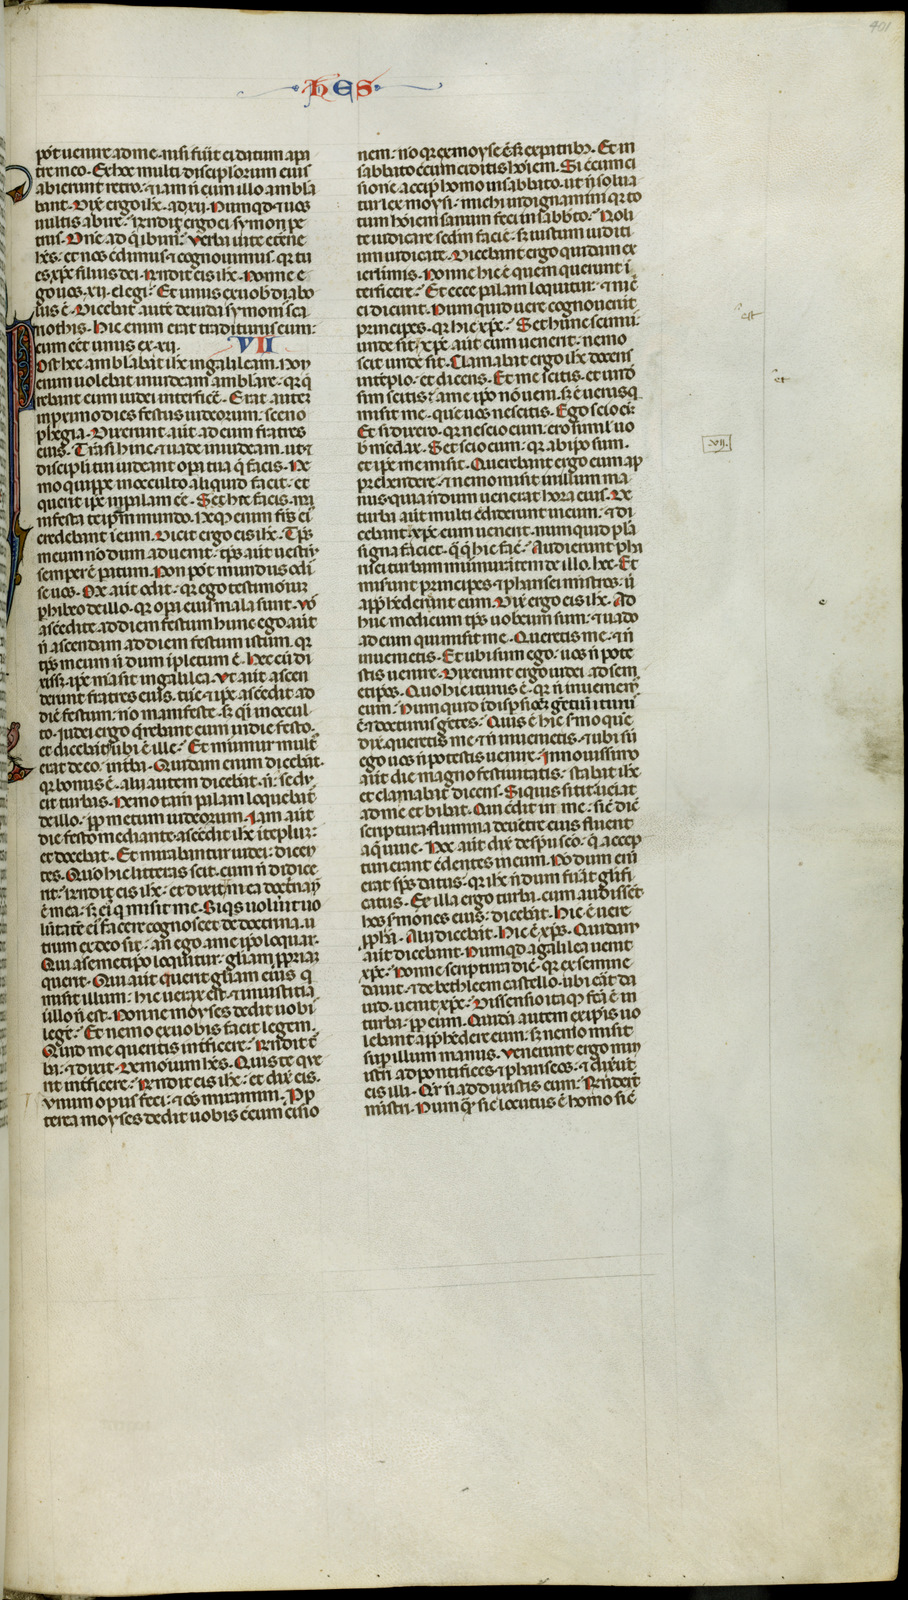 401
HES
pot̄ uenire ad me· nisi fuīt ei datum a pa
tre meo· Ex hoc multi discipulorum eius
abierunt retro· ⁊ iam n̄ cum illo ambla
bant· Dix̄ ergo ih̄c· ad xii· Numqd ⁊ uos
multis abire· R̄ndit ergo ei symon pe
trus· Dn̄e ad q̄ ibim᷒· Uerba uite et̄ne
hēs· et nos c̄dimus ⁊ cognouimus· qr tu
es xp̄c filius dei· R̄ndit eis ih̄c· Nonne e
go uos xii· elegi· Et unus ex uob̄ diabo
lus ē· Dicebat aut̄e de iuda symonis sca
riothis· Hic enim erat traditurus eum:
cum eēt unus ex xii·
VII
Post hec amblabat ih̄c in galileam· Non
enim uolebat in iudeam amblare· qr q̄
rebant eum iudei interficē· Erat autē
in primo dies festus iudeorum· sceno
phegia· Dixerunt aūt ad eum fratres
eius· Trāsi hinc· ⁊ uade in iudeam· ut ⁊
discipli tui uideant opa tua q̄ facis· Ne
mo quippe in occulto aliquid facit· et
querit ipē in palam eē· Si hec facis· ma
nifesta te ipm̄ mundo· Neq̄ enim frīs ei᷒
credebant ī eum· Dicit ergo eis ih̄c· Tp̄s
meum nodum aduenit· tp̄s aūt uestrū
semper ē patum· Non pot̄ mundus odi
se uos· Me aūt odit· qr ego testimoniū
phibeo de illo· qr opa eius mala sunt· Vos
ascēdite ad diem festum hunc· ego aūt
n̄ ascendam ad diem festum istum· qr
tp̄s meum n̄ dum īpletum ē· Hec cū di
xissz· ipē māsit in galilea· Vt aūt ascen
derunt fratres eius· tūc ⁊ ipē ascēdit ad
diē festum· nō manifeste· sz q̄si in occul
to· Iudei ergo q̄rebant eum in die festo·
et dicebāt· ubi ē ille· Et mīmur mult᷒
erat de eo· in t᷒ba· Quidam enim dicebāt·
qr bonus ē· alii autem dicebāt· n̄· sed sedu
cit turbas· Nemo tam̄ palam loquebat᷒
de illo· pp̄ metum iudeorum· Iam aūt
die festo mediante· ascēdit ih̄c ī teplum·
et docebat· Et mirabantur iudei· dicen
tes· Quō hic litteras scit· cum n̄ didice
rit· R̄ndit eis ih̄c· et dixit· Mea doct̄na n̄
ē mea· sz ei᷒ q̄ misit me· Siq̄s uolūit uo
lūtatē ei᷒ facere· cognoscet de doctrina· u
trum ex deo sit· an ego a me ipō loquar·
Qui a semetipō loquitur· glīam ppriam
querit· Qui aūt querit glīam eius q̄
misit illum· hic uerax est· ⁊ iniustitia
ī illo n̄ est· Nonne moyses dedit uobis
legē· Et nemo ex uobis facit legem·
Quid me queritis int̄ficere· R̄ndit t᷒
ba· ⁊ dixit· Demonium hēs· Quis te que
rit int̄ficere· R̄ndit eis ih̄c· et dix̄ eis·
Vnum opus feci· ⁊ oēs miramini· Pp̄
terea moyses dedit uobis c̄cumcisio
nem· nō qr ex moyse ē· sz ex patrib᷒· Et in
sabbato c̄cumciditis hoīem· Si c̄cumci
sionē accip̄ homo in sabbato· ut n̄ solua
tur lex moysi· michi indignamini qr to
tum hoīem sanum feci in sabb̄to· Noli
te iudicare scd̄m faciē· sz iustum iuditi
um iudicate· Dicebant ergo quidam ex
ierl̄imis· Nonne hic ē quem querunt ī
terficere· Et ecce palam loquitur· ⁊ nic̄
ei dicunt· Num quid uere cognouerūt
principes· qr hic xp̄c· Sz hūnc scimus
unde sit· xp̄c aūt cum uenerit· nemo
scit unde sit· Clamabat ergo ih̄c docens
in tēplo· et dicens· Et me scitis· et undē
sim scitis· ⁊ a me ipō nō ueni· sz ē uerus q̄
misit me· que uos nescitis· Ego scio eū·
Et si dixero· qr nescio eum· ero similis uo
b̄ mēdax· Sz scio eum· qr ab ipō sum·
et ipē me misit· Querebant ergo eum ap
prehendere· ⁊ nemo misit in illum ma
nus· quia n̄dum uenerat hora eius· De
turba aūt multi c̄diderunt in eum· ⁊ di
cebant· xp̄c cum uenerit· num quid pl᷒a
signa faciet· q̄ q̄ hic fac̄· Audierunt pha
risei turbam murmurātem de illo· hec· Et
miserunt principes ⁊ pharisei mīstros· ut
app̄hēderent eum· Dix̄ ergo eis ih̄c· Ad
huc modicum tp̄s uobcum sum· ⁊ uado
ad eum qui misit me· Queretis me· ⁊ n̄
inuenietis· Et ubi sum ego· uos n̄ pote
stis uenire· Dixerunt ergo iudei ad sem
etipōs· Quo hic iturus ē· qr n̄ inueniem᷒
eum· Num quid ī disp̄sionē gētiū iturus
ē ⁊ docturus gētes· Quis ē hic s᷒mo que
dix̄· queretis me ⁊ n̄ inuenietis· ⁊ ubi sū
ego uos n̄ potestis uenire· In nouissimo
aūt die magno festiuitatis· stabat ih̄c
et clamabat dicens· Siquis sitit ueniat
ad me et bibat· Qui c̄dit in me· sic̄ dic̄
scriptura· flumina deuētre eius fluent
aq̄ uiue· Hoc aūt dix̄ de sp̄u scō· q̄ accep
turi erant c̄dentes in eum· Nōdum eni᷒
erat sp̄s datus· qr ih̄c n̄dum fuāt glīfi
catus· Ex illa ergo turba· cum audisset
hos s᷒mones eius· dicebāt· Hic ē uere
pp̄ha· Alii dicebāt· Hic ē xp̄s· Quidam
aūt dicebant· Numqd a galilea uenit
xp̄c· Nonne scriptura dic̄· qr ex semine
dauit· ⁊ de bethleem castello· ubi eāt da
uid· uenit xp̄c· Dissensio itaq̄ fca ē in
turba· pp̄ eum· Quidā autem ex ipsis uo
lebant app̄hēdere eum· sz nemo misit
sup illum manus· Venerunt ergo mini
istri ad pontifices ⁊ phariseos· ⁊ dixūt
eis illi· Qr n̄ adduxistis eum· R̄nderūt
mīstri· Num q̄ sic locutus ē homo sic̄
est
et
vii.
e